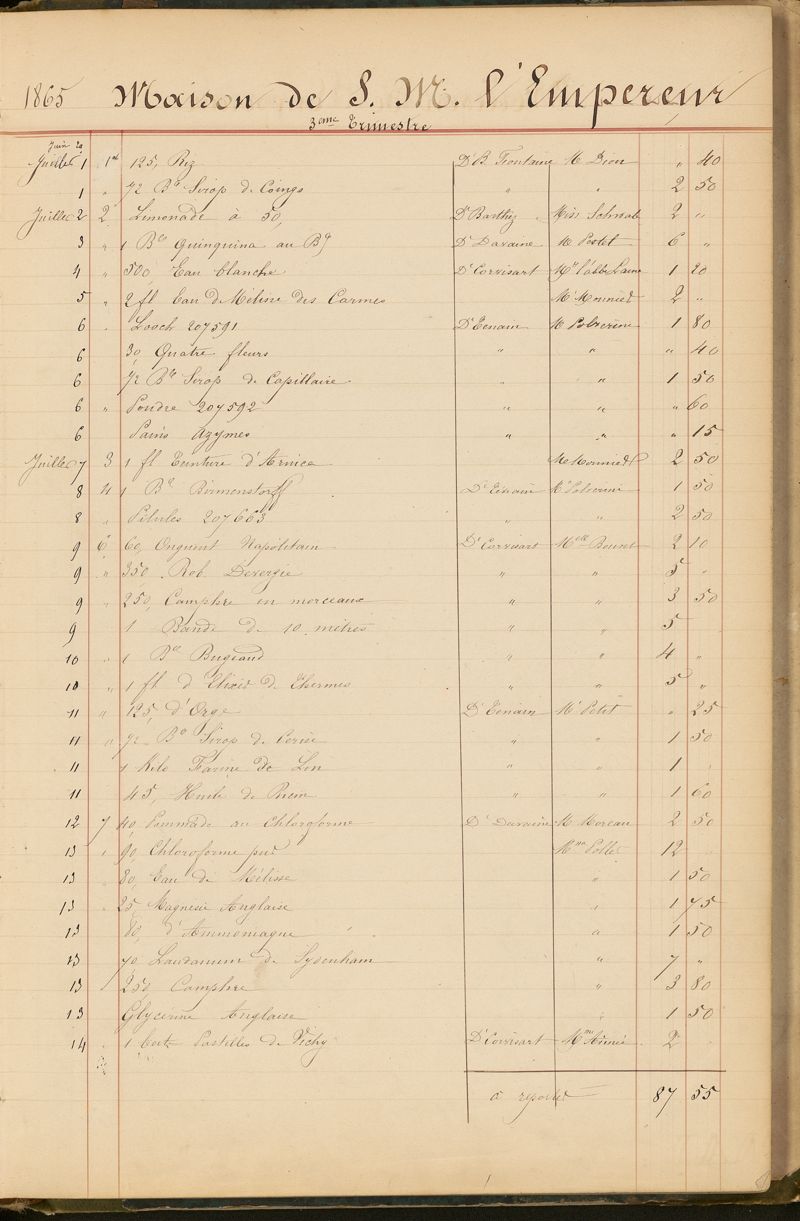 1865 Maison de S. M. l'Empereur
3eme Trimestre
Juin 29
Juillet 1 1er 125, Riz Dr B. Fiontaine M Dion " 40
1 " 1/2 Blle Sirop de Coings " " 2 50
Juillet 2 2 Limonade à 50, Dr Barthez Miss Schwab 2 "
3 " 1 Blle Quinquina au Bx Dr Davaine M Pestel 6 "
4 " 500, Eau blanche Dr Corvisart Mr l'abbé Laine 1 20
5 " 2 fl Eau de Méline des Carmes Mr Mounier 2 "
6 Looch 207591 Dr Tenain M Polverini 1 80
6 30, Quatre fleurs " " " 40
6 1/2 Blle Sirop de Capillaire " " 1 50
6 " Poudre 207592 " " " 60
6 Pains azymes " " " 15
Juillet 7 3 1 fl Teinture d'Arnica M Mounier 2 50
8 4 1 Blle Birmenstorff Dr Tenain Mr Polverini 1 50
8 " Pilules 207603 " " 2 50
9 6 60, Onguent Napolitain Dr Corvisart Melle Bouvet 2 10
9 " 350 Rob Devergie " " 5 "
9 " 250, Camphre en morceaux " " 3 50
9 1 Bande de 10 mètres " " 5
10 " 1 Blle Bugeaud " " 4 "
10 " 1 fl d'Elixir de Thermes " " 5 "
11 " 125, d'Orge Dr Tenain Mr Petit " 25
11 " 1/2 Blle Sirop de Cerise " " 1 50
11 1 Kilo Farine de Lin " " 1
11 45, Huile de Ricin " " 1 60
12 7 40, Pommade au Chloroforme Dr Davaine M Moreau 2 50
13 90, Chloroforme pur Mme Pollet 12
13 80, Eau de Mélisse " 1 50
13 25, Magnésie Anglaise " 1 75
13 80, d'Ammoniaque " " 1 50
13 70, Laudanum de Sydenham " 7 "
13 250 Camphre " 3 80
13 Glycerine Anglaise " 1 50
14 1 boite Pastilles de Vichy Dr Corvisart Mme Aimée 2
à reporter 87 55